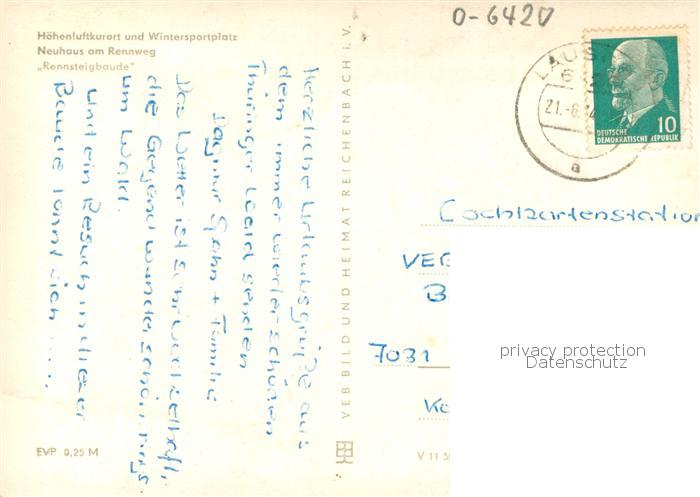 O-6420
Höhenluftkurort und Wintersportplatz
Neuhaus am Rennweg
„Rennsteigbaude"
Herzliche Urlaubsgrüße aus
dem immer wieder schönen
Thüringer Wald senden
Dagmar Spahn + Familie
Das Wetter ist sehr wechselhaft,
die Gegend wunderschön, rings-
um Wald.
Und ein Besuch in dieser
Baude lohnt sich ....
EVP 0,25 M
VEB BILD UND HEIMAT REICHENBACH i. V.
V 11 5
LAUS
21.-6.
a
10
DEUTSCHE
DEMOKRATISCHE REPUBLIK
VEB
B
7031
privacy protection
Datenschutz